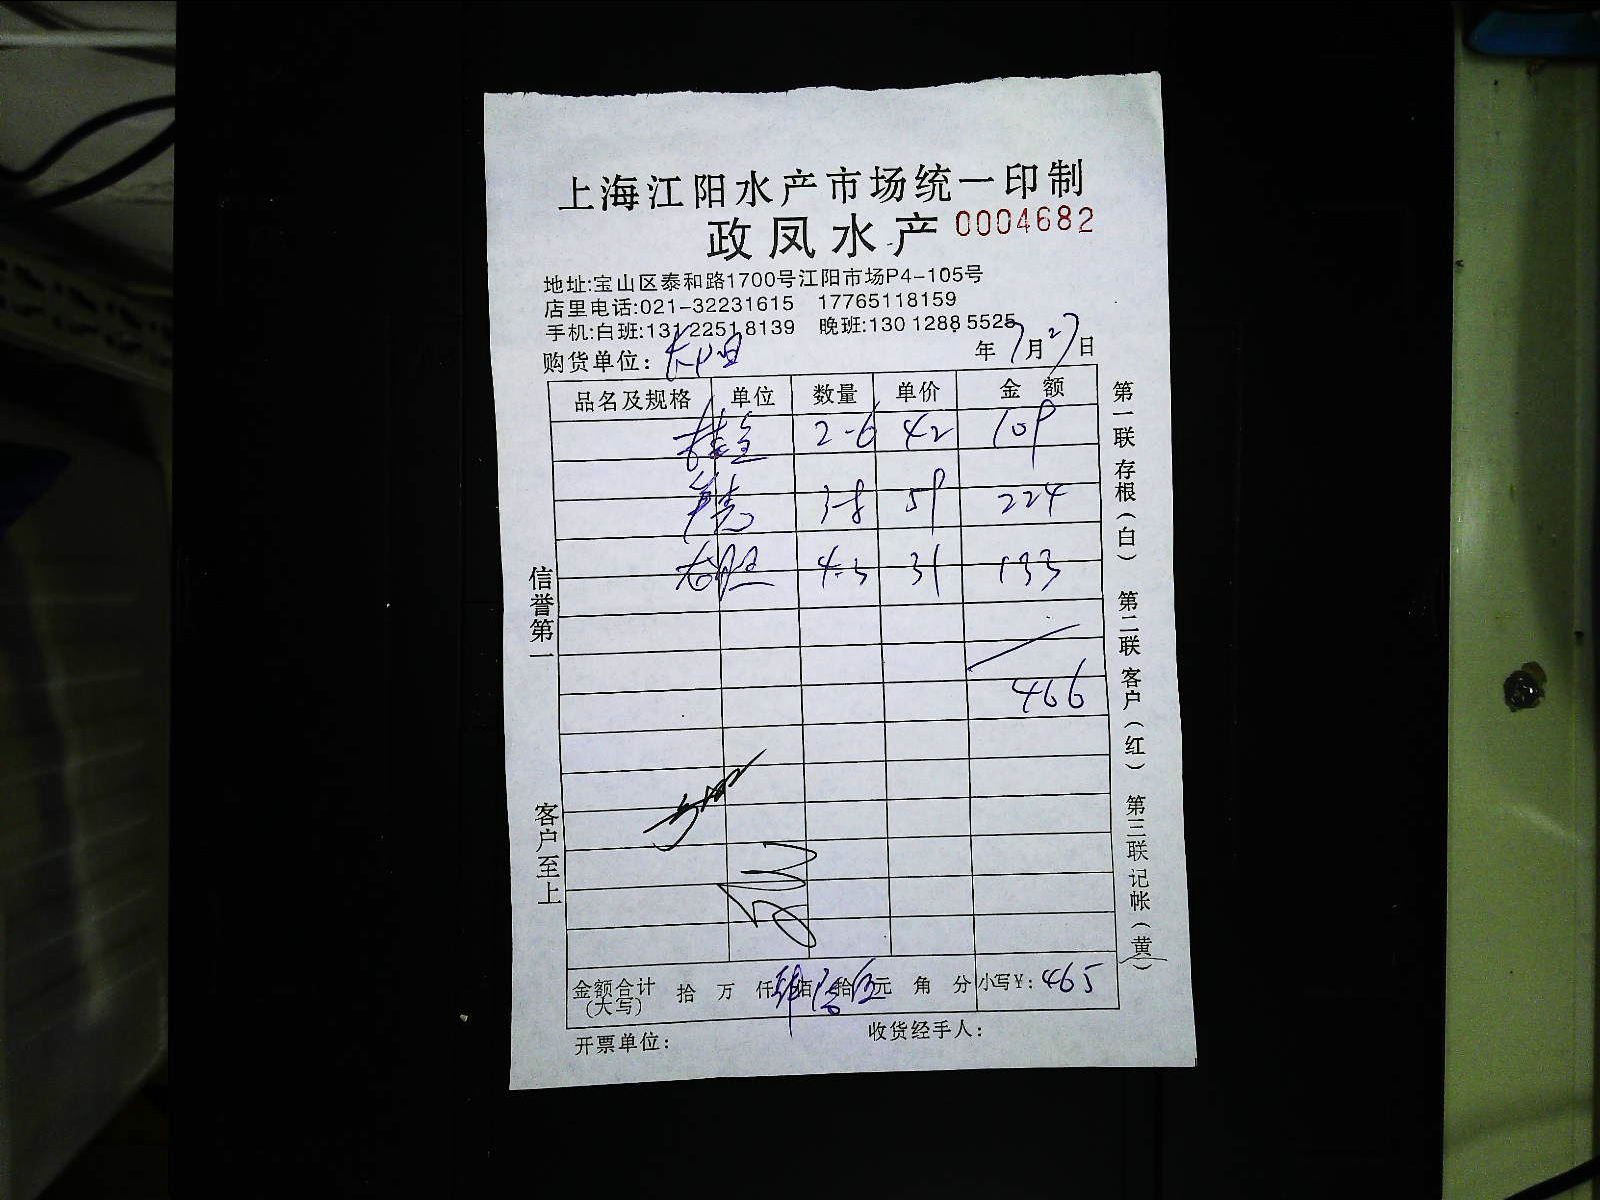 上海江阳水产市场统一印制
政凤水产 0004682
地址:宝山区泰和路1700号江阳市场P4-105号
店里电话:021-32231615 17765118159
手机:白班:13122518139 晚班:13012885525
购货单位: 年7月27日
品名及规格 单位 数量 单价 金额
桂鱼 2-6 42 109
3-8 59 224
4-3 31 133
466
金额合计(大写) 拾 万 仟 肆佰陆拾伍元 角 分 小写¥: 465
开票单位: 收货经手人:
信誉第一
客户至上
第一联存根(白) 第二联客户(红) 第三联记帐(黄)